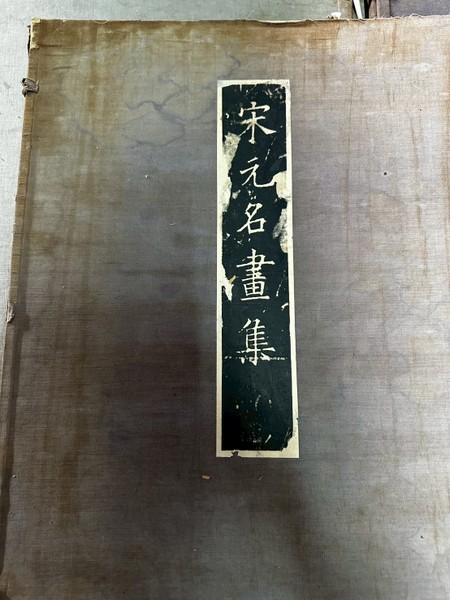 宋元名畫集